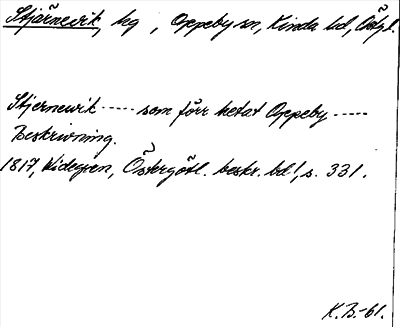 Stjärnevik, hg, Oppeby sn, Kinda hd, Östgl.
Stjernewik ----- som förr hetat Oppeby -----
Beskrivning.
1817, Widegren, Östergötl. beskr. bd 1, s. 331.
K.B.-61.